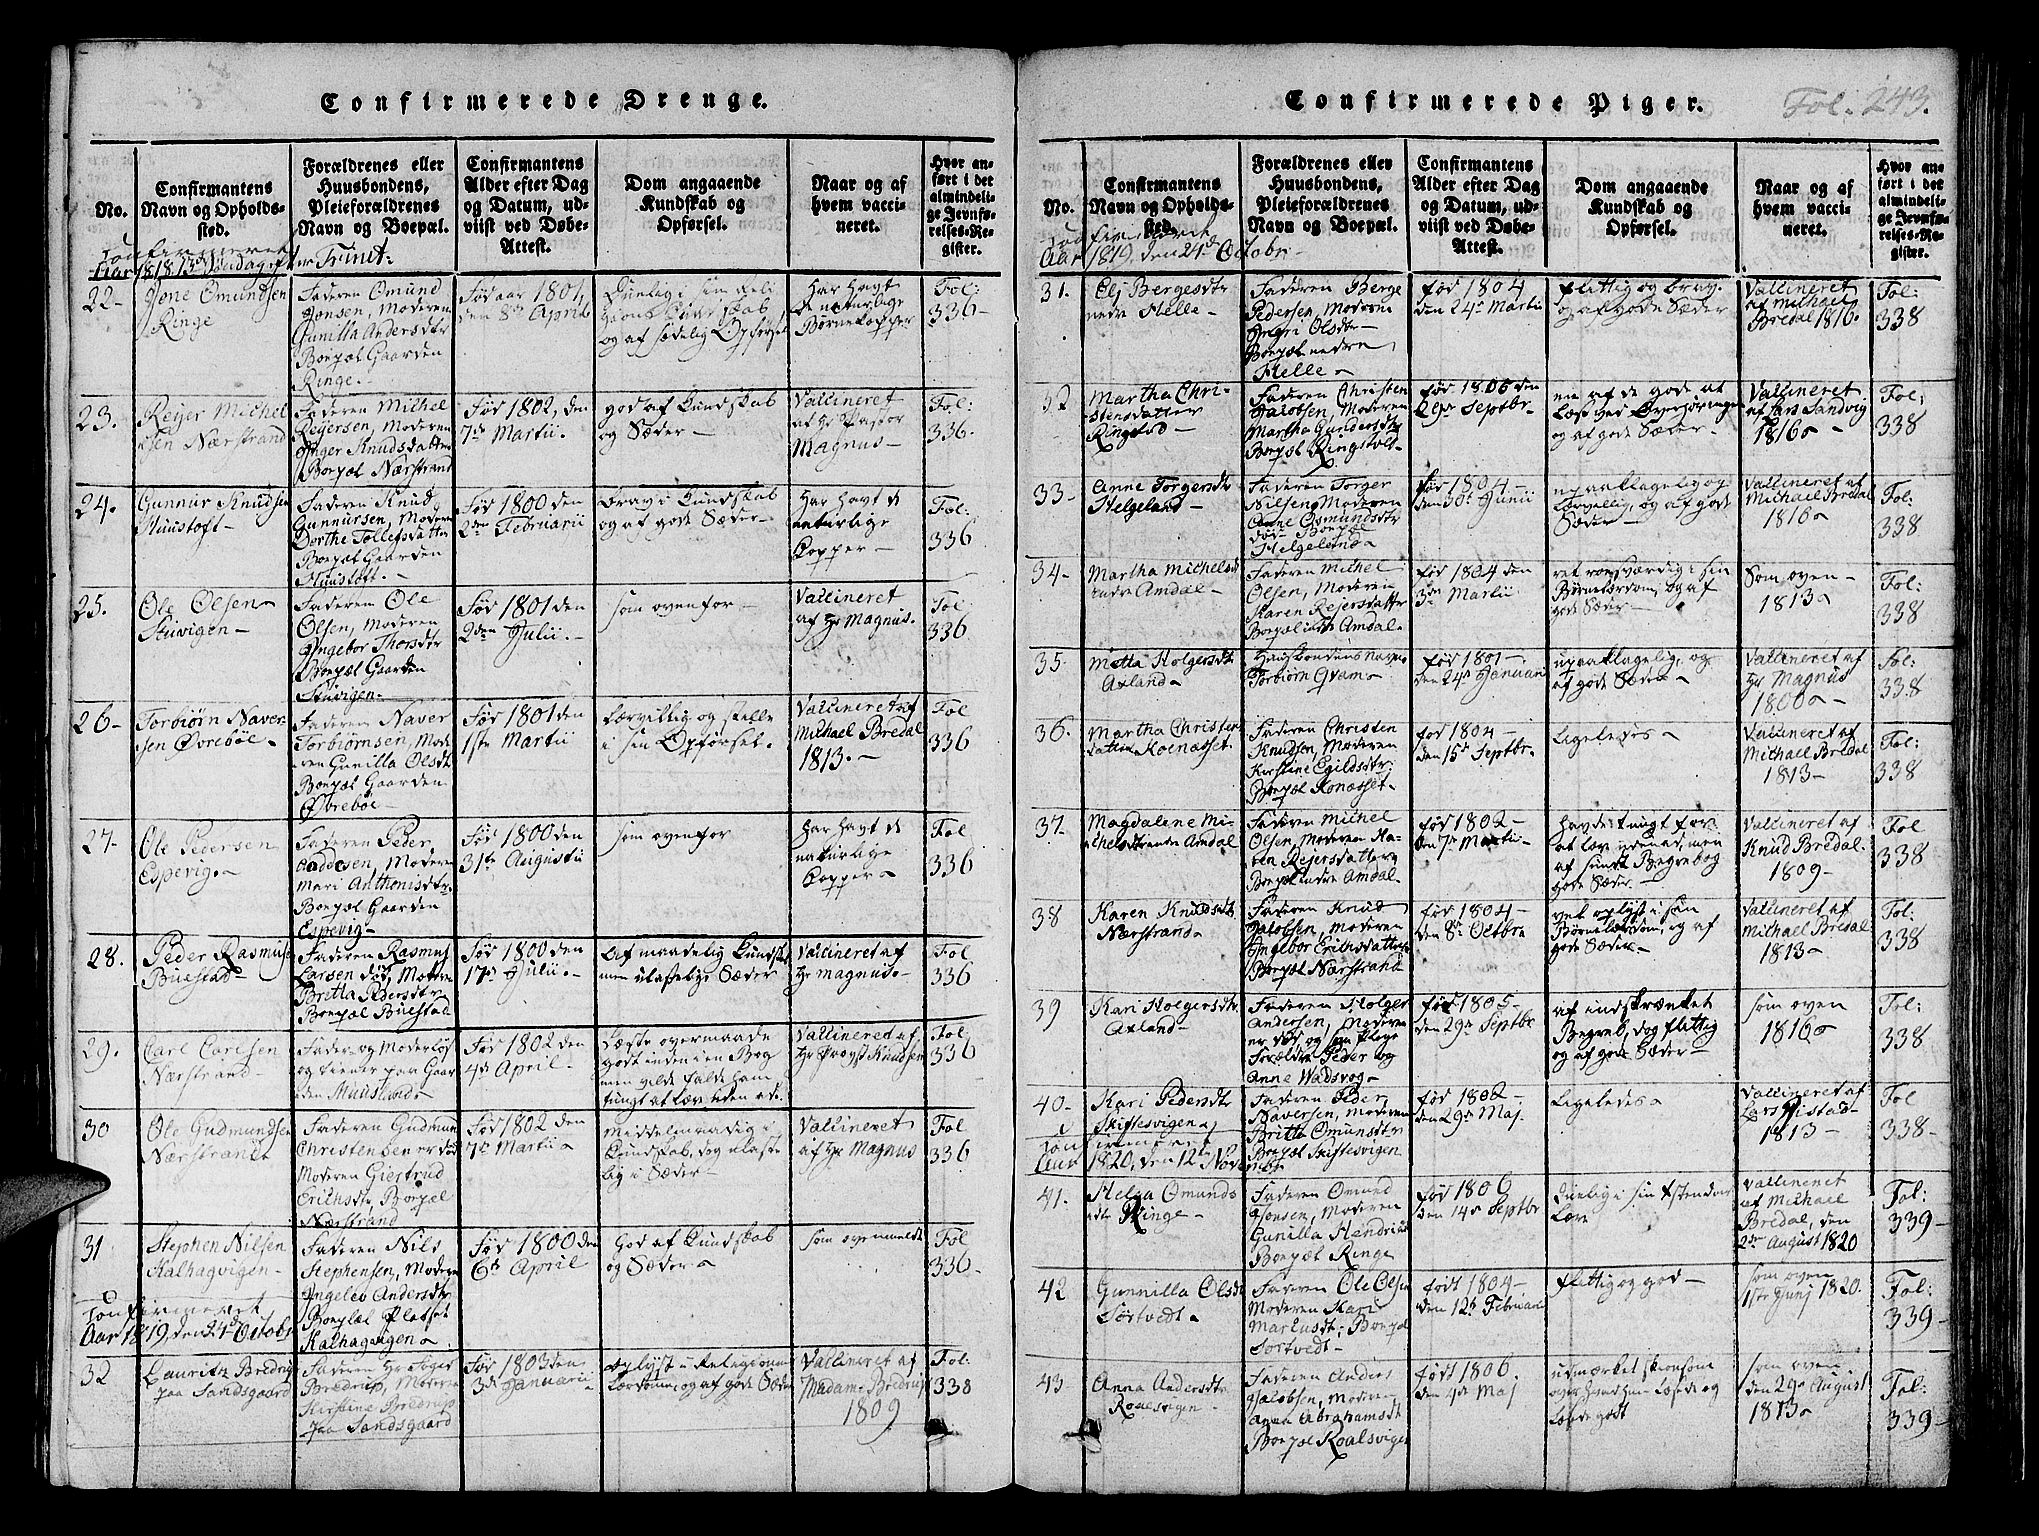 Confirmerede Drenge.
No.
Confirmantens Navn og Opholds-sted.
Forældrenes eller Huusbondens, Pleieforældrenes Navn og Boepæl.
Confirmantens Alder efter Dag og Datum, ud-viist ved Døbe-Attest.
Dom angaaende Kundskab og Opførsel.
Naar og af hvem vacci-neret.
Hvor an-ført i det almindeli-ge Jevnfø-relses-Re-gister.
Confirmeret
Aar 1818 Søndag efter Trinit:
22-
Jone Omundsen
Ringe
Faderen Omund
Jonsen, Moderen
Gunilla Andersdtr
Boepæl Gaarden
Ringe.-
Fød aar 1801,
den 8de April
og af sædelig Opførsel
Har havt
de naturlige
Børnekopper
Fol:
336-
23.
Reijer Michel
sen Nærstrand
Faderen Michel
Reijersen, Moderen
Inger Knudsdatter
Boepæl Nærstrand
Fød 1802, den
7de Martii.
god af Kundskab
og Sæder-
Vaccineret
af Hr Pastor
Magnus-
Fol:
336.
24.
Gunnur Knudsen
Muustoft-
Faderen Knud
Gunnursen, Moder
Dorthe Tollefsdatter
Boepæl Gaarden
Muustoft.-
Fød 1800 den
2den Februarii
brav i Kundskab
og af gode Sæder-
Har havt de
naturlige
Copper-
Fol:
336
25.
Ole Olsen-
Stuvigen-
Faderen Ole
Olsen, Moderen
Ingebor Thorsdtr
Boepæl Gaarden
Stuvigen-
Fød 1801 den
2den Julii.-
som ovenfor-
Vaccineret
af Hr Magnus.
Fol:
336
26-
Torbiørn Naver
sen Øvrebøe-
Faderen Naver
Torbiørnsen, Mode
ren Gunilla Olsdt
Boepæl Gaarden
Øvrebøe-
Fød 1801 den
1ste Martii
lærvillig og stille
i sin Opførsel.
Vaccineret af
Michael Bredal
1813.-
Fol
336
27-
Ole Pedersen
Espevig.-
Faderen Peder
Addesen, Moderen
Mari Anthonisdtr.
Boepæl Gaarden
Espevig-
Fød 1800 den
31te Augustii
som ovenfor
Har havt de
naturlige
Copper-
Fol
336
28.
Peder Rasmus
Buestad
Faderen Rasmus
Larsen død, Moderen
Britta Pedersdtr
Boepæl Buestad
Fød 1800 den
17de Julii.-
Af maadelig Kundskab
men ulastelige Sæder
Vaccineret af
Hr Magnus-
Fol
336
29.
Carl Carlsen
Nærstrand-
Fader og Moderløs
og tiener paa Gaar
den Muusland-
Fød 1802 den
4de April-
Læste overmaade
godt inden i en Bog
men
Vaccinered af
Hr Provst Knudsen
Fol:
336
30
Ole Gudmundsen
Nærstrand
Faderen Gudmun
Christensen er død
Moderen Giertrud
Erichsdt, Boepæl
Nærstrand
Fød 1802 den
4de Martii
Middelmaadig i
Kundskab, dog ulaste
lig i Sæder-
Vaccineret
af Hr Magnus
Fol
336
31
Stephen Nilsen
Kalhagvigen-
Faderen Nils
Stephensen, Moderen
Ingeleb Andersdtr
Boepæl Pladset
Kalhagvigen-
Fød 1800 den
6te April
God af Kundskab
og Sæder-
som ovenmeldt
Fol
336-
Confirmeret
Aar 1819, den 24de Octobr
32
Lauritz Bredrup
paa Sandsgaard
Faderen Hr Søger
Bredrup, Moderen
Kirstine Bredrup
paa Sandsgaard
Fød 1803 den
3de Januarii
oplyst i Religionens
Lærdomme og af gode Sæder
Vaccineret af
Madame Bredrup
1809
Fol:
338
Confirmerede Piger.
Fol. 243.
No.
Confirmantens Navn og Opholds-sted.
Forældrenes eller Huusbondens, Pleieforældrenes Navn og Boepæl.
Confirmantens Alder efter Dag og Datum, ud-viist ved Døbe-Attest.
Dom angaaende Kundskab og Opførsel.
Naar og af hvem vacci-neret.
Hvor an-ført i det almindeli-ge Jevnfø-relses-Re-gister.
Confirmeret
Aar 1819, den 24de Octobr-
31.
Elj Bergesdtr
nedr Helle-
Faderen Berge
Pedersen, Moderen
Ingri Olsdtr
Boepæl nedre
Helle-
fød 1804
den 24de Martii
flittig og brav
og af gode Sæder
Vaccineret
af Michael
Bredal 1816.
Fol:
338
32
Martha Chri-
stensdatter
Ringstad-
Faderen Christen
Jacobsen, Moderen
Martha Gundersdtr
fød 1805 den
29de Septbr.
een af de gode at
læse ved Overhøringen
og af gode Sæder-
Vaccineret
af Lars Sandvig
1816-
Fol;
338
33-
Anne Torgersdtr
Helgeland-
Faderen Torger
Nilsen, Moderen
Anne Osmundsdtr
død- Boepæl
Helgeland-
fød 1804-
den 30te Junii
upaaklagelig og
lærvellig, og af gode
Sæder-
Vaccineret af
Michael Bredal
1816-
Fol:
338
34-
Martha Michelsdt
indre Amdal-
Faderen Michel
Olsen, Moderen
Karen Reiersdatter
Boepæl indr Amdal-
fød 1804 den
3de Martii
ret roesværdig i sin
Børnelærdom, og af
gode Sæder-
Som oven-
1813-
Fol:
338
35.
Metta Holgersdtr
Axland-
Huusbondens navn
Torbiørn Qvam-
fød 1801-
den 24de Januarii
upaaklagelig, og
af gode Sæder-
Vaccineret af
Hr Magnus
1800-
Fol:
338
36.
Martha Christens
datter Konasset.
Faderen Christen
Knudsen, Moderen
Kirstine Egildsdtr:
Boepæl Konasset-
fød 1804-
den 15de Septbr.
Ligeledes-
Vaccineret af
Michael Bredal
1813-
Fol:
338
37-
Magdalene Mi-
chelsdtr indre Amdal
Faderen Michel
Olsen, Moderen Ka-
ren Reijersdatter
Boepæl indre Amdal-
fød 1802-
den 7de Martii-
havde tungt for
at lære udenad, men
af sundt Begreb og
gode Sæder-
Vaccineret af
Knud Bredal
1809-
Fol
338
38
Karen Knudsdtr
Nærstrand-
Faderen Knud
Jacobsen, Moderen
Ingebor Erichsdatter
Boepæl Nærstrand
fød 1804-
den 8de Octbr-
vel oplyst i sin
Børnelærdom, og af
gode Sæder-
Vaccineret af
Michael Bredal
1813-
Fol:
338
39
Kari Holgersdtr.
Axland-
Faderen Holger
Andersen, Moderen
er død og
Forældre Peder og
Anne Wadsvog-
fød 1805-
den 29de Septbr
af indskrænket
Begreb, dog flittig
og af gode Sæder-
som oven
1816-
Fol:
338
40-
Kari Pedersdtr
Skiftesvigen-
Faderen Peder
Naversen, Moderen
Britta Omundsdtr
Boepæl Skiftesvigen
fød 1802-
den 29de Maj.
Ligeledes-
Vaccineret af
1813-
Fol
338-
Confirmeret
Aar 1820, den 12te Novembr
41.
Helga Omunds
dtr Ringe-
Faderen Omund
Jonsen, Moderen
Gunilla Hendrichs
Boepæl Ringe
fød 1806
den 14de Septbr
Vaccineret
af Michael
Bredal, den
2den August 1820
Fol:
339-
42
Gunnilla Olsdt
Tørtvedt-
Faderen Ole Olsen
Moderen Kari
Marcusdt; Boepæl
Tortvedt-
født 1804-
den 12te Februarii
flittig og god-
som oven
1ste Junj 1820.
Fol:
339-
43
Anna Andersdtr
Roalsvigen
Faderen Anders
Jacobsen, Moderen
Anna Abrahamsdt
Boepæl Roalsvigen
født 1806
den 4de Maj
læsde godt
som oven
den 29de August
1813-
Fol:
339-